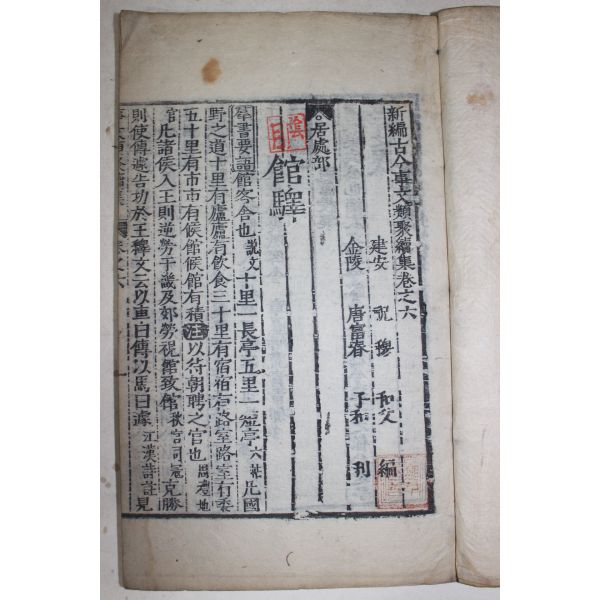 新編古今事文類聚續集卷之六
建安 祝穆 和父 編
金陵 唐富春 子和 刊
居處部
館驛
羣書要語館客舍也說文十里一長亭五里一短亭六帖凡國
野之道十里有廬廬有飲食三十里有宿宿有路室路室有委
五十里有市市有候館候館有積注以待朝聘之官也周禮地
官凡諸侯入王則逆勞于畿及郊勞視館致館秋官司儀克勝
則使傳遽告功於王釋文云以車曰傳以馬曰遽江漢詩註見